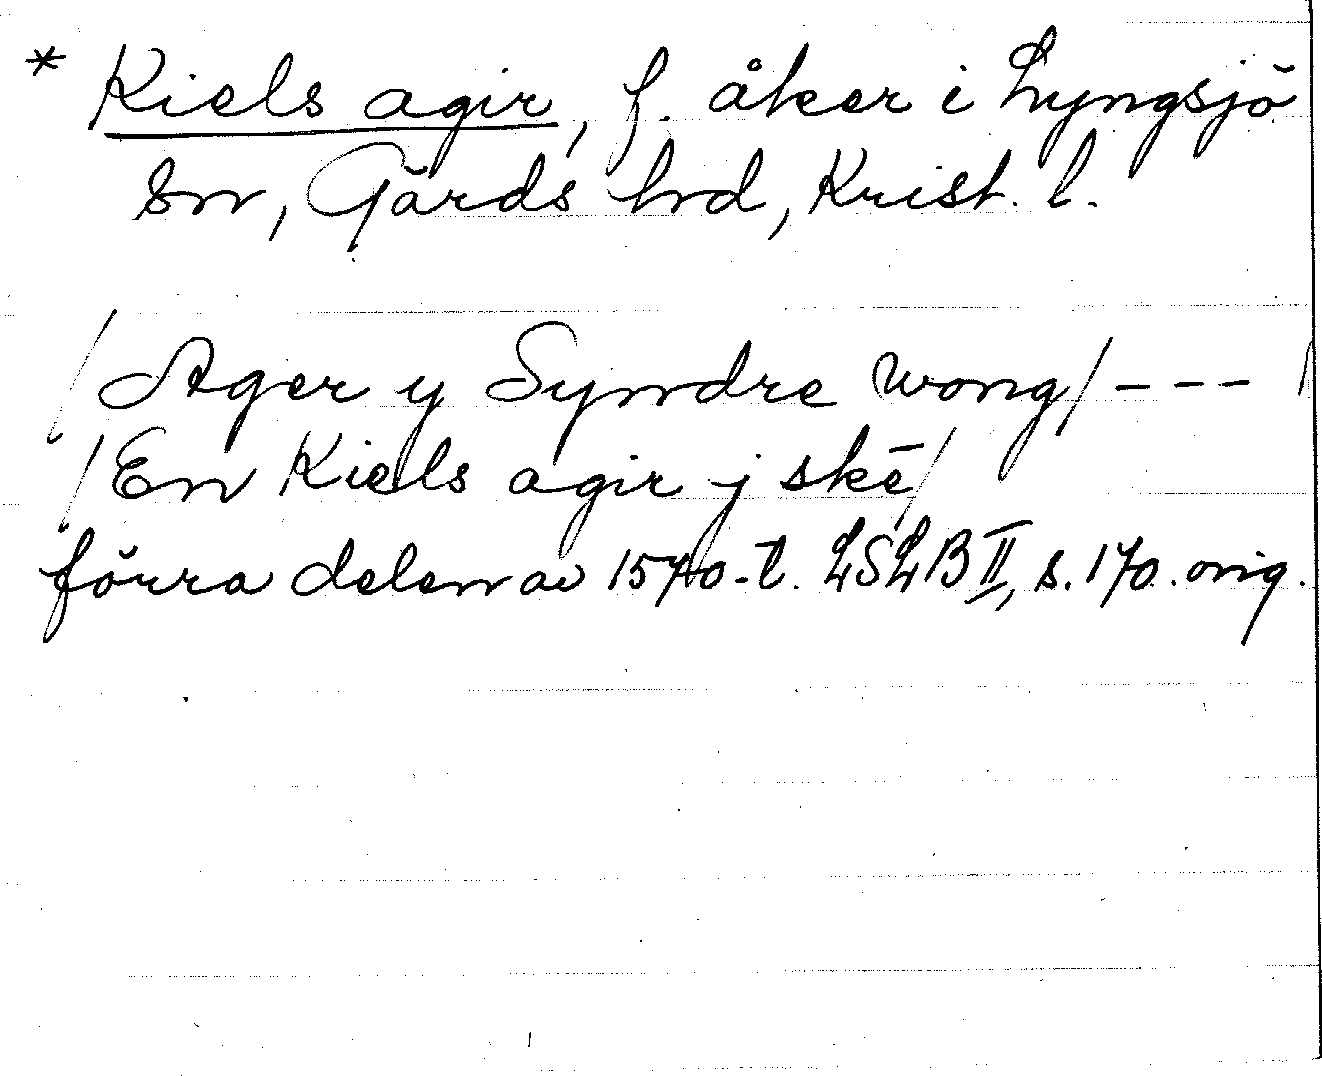 * Kiels agir, f. åker i Lyngsjö
sn, Gärds hrd, Krist. l.
/Ager y Syndre Wong/ --- /
/En Kiels agir j skē/
förra delen av 1570-t. LSLB II, s. 170. orig.